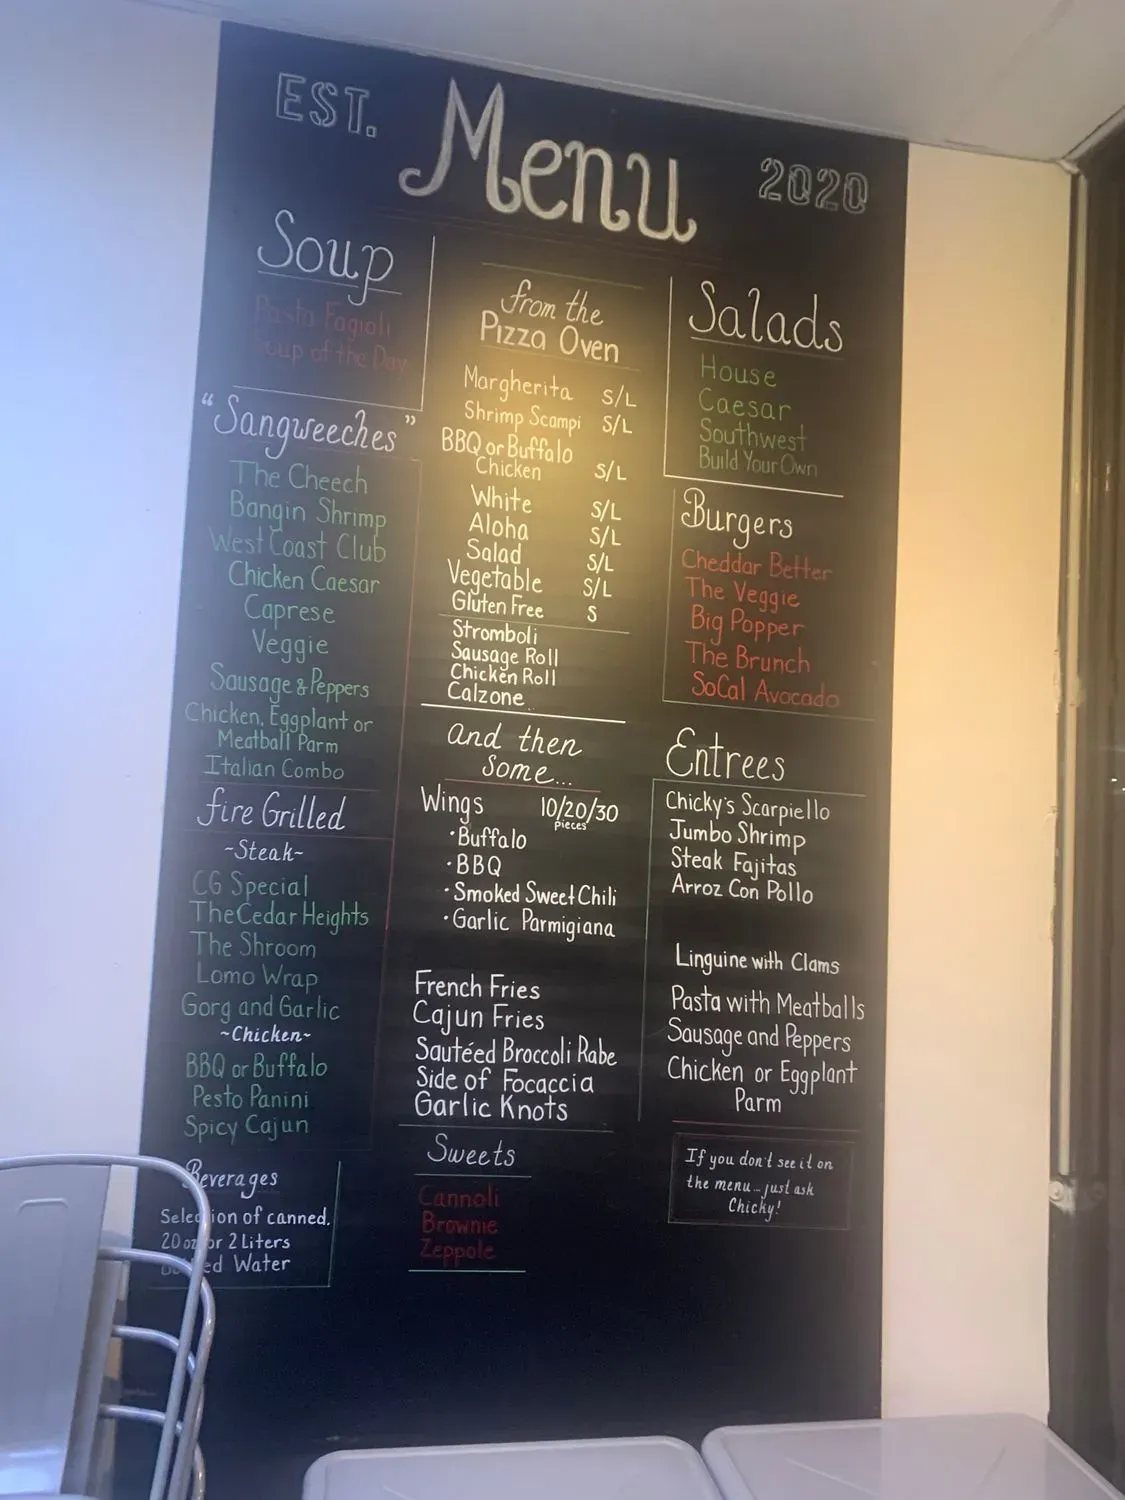 EST.
Menu
2020
Soup
Pasta Fagioli
Soup of the Day
"Sangweeches"
The Cheech
Bangin Shrimp
West Coast Club
Chicken Caesar
Caprese
Veggie
Sausage & Peppers
Chicken, Eggplant or
Meatball Parm
Italian Combo
fire Grilled
~Steak~
CG Special
The Cedar Heights
The Shroom
Lomo Wrap
Gorg and Garlic
~Chicken~
BBQ or Buffalo
Pesto Panini
Spicy Cajun
Beverages
Selection of canned.
20 oz or 2 Liters
Bottled Water
from the
Pizza Oven
Margherita S/L
Shrimp Scampi S/L
BBQ or Buffalo
Chicken S/L
White S/L
Aloha S/L
Salad S/L
Vegetable S/L
Gluten Free S
Stromboli
Sausage Roll
Chicken Roll
Calzone
and then
some...
Wings 10/20/30
pieces
·Buffalo
·BBQ
·Smoked Sweet Chili
·Garlic Parmigiana
French Fries
Cajun Fries
Sautéed Broccoli Rabe
Side of Focaccia
Garlic Knots
Sweets
Cannoli
Brownie
Zeppole
Salads
House
Caesar
Southwest
Build Your Own
Burgers
Cheddar Better
The Veggie
Big Popper
The Brunch
SoCal Avocado
Entrees
Chicky's Scarpiello
Jumbo Shrimp
Steak Fajitas
Arroz Con Pollo
Linguine with Clams
Pasta with Meatballs
Sausage and Peppers
Chicken or Eggplant
Parm
If you don't see it on
the menu...just ask
Chicky!